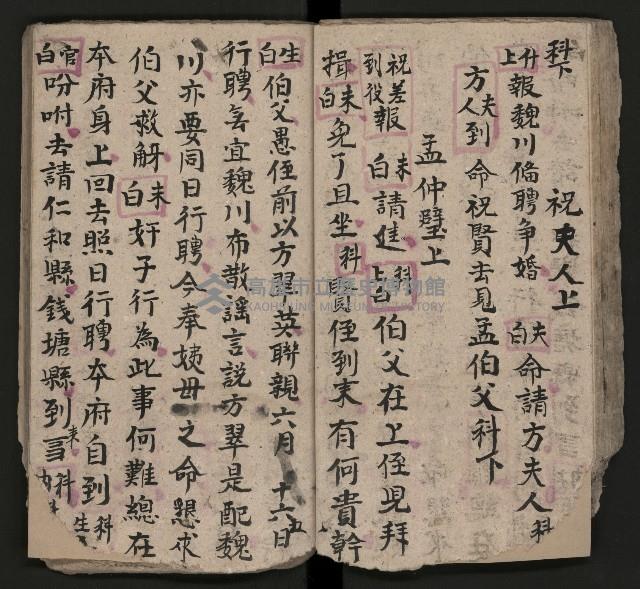 科下　祝夫人上
什上報魏川偹聘争婚　夫白命請方夫人科
方夫人到　命祝賢去見孟伯父科下
孟仲璧上
祝差到役報　末白請進　科上白伯父在上侄見拜
揖　末白免了且坐　科賢侄到末有何貴幹
生白伯父愚侄前以方翠英聯親六月十六日
行聘　宜魏川布散謡言説方翠是配魏
川亦要同日行聘今奉姨母之命懇求
伯父救觧　末白奸子行為此事何難總在
夲府身上回去照日行聘夲府自到科生
官白吩咐去請仁和縣錢塘縣到末科
高雄市立歷史博物館
KAOHSIUNG MUSEUM OF HISTORY